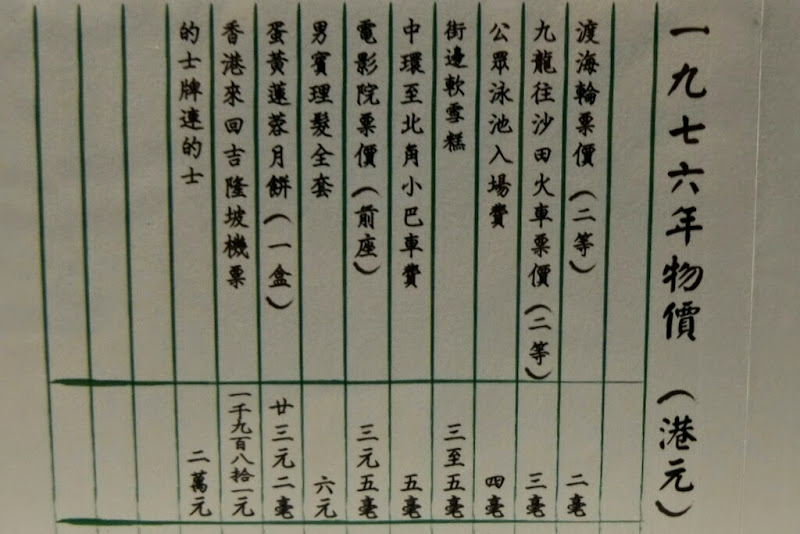 一九七六年物價 (港元)
渡海輪票價(二等) 二毫
九龍往沙田火車票價(二等) 三毫
公眾泳池入場費 四毫
街邊軟雪糕 三至五毫
中環至北角小巴車費 五毫
電影院票價(前座) 三元五毫
男賓理髮全套 六元
蛋黃蓮蓉月餅(一盒) 廿三元二毫
香港來回吉隆坡機票 一千九百八拾一元
的士牌連的士 二萬元